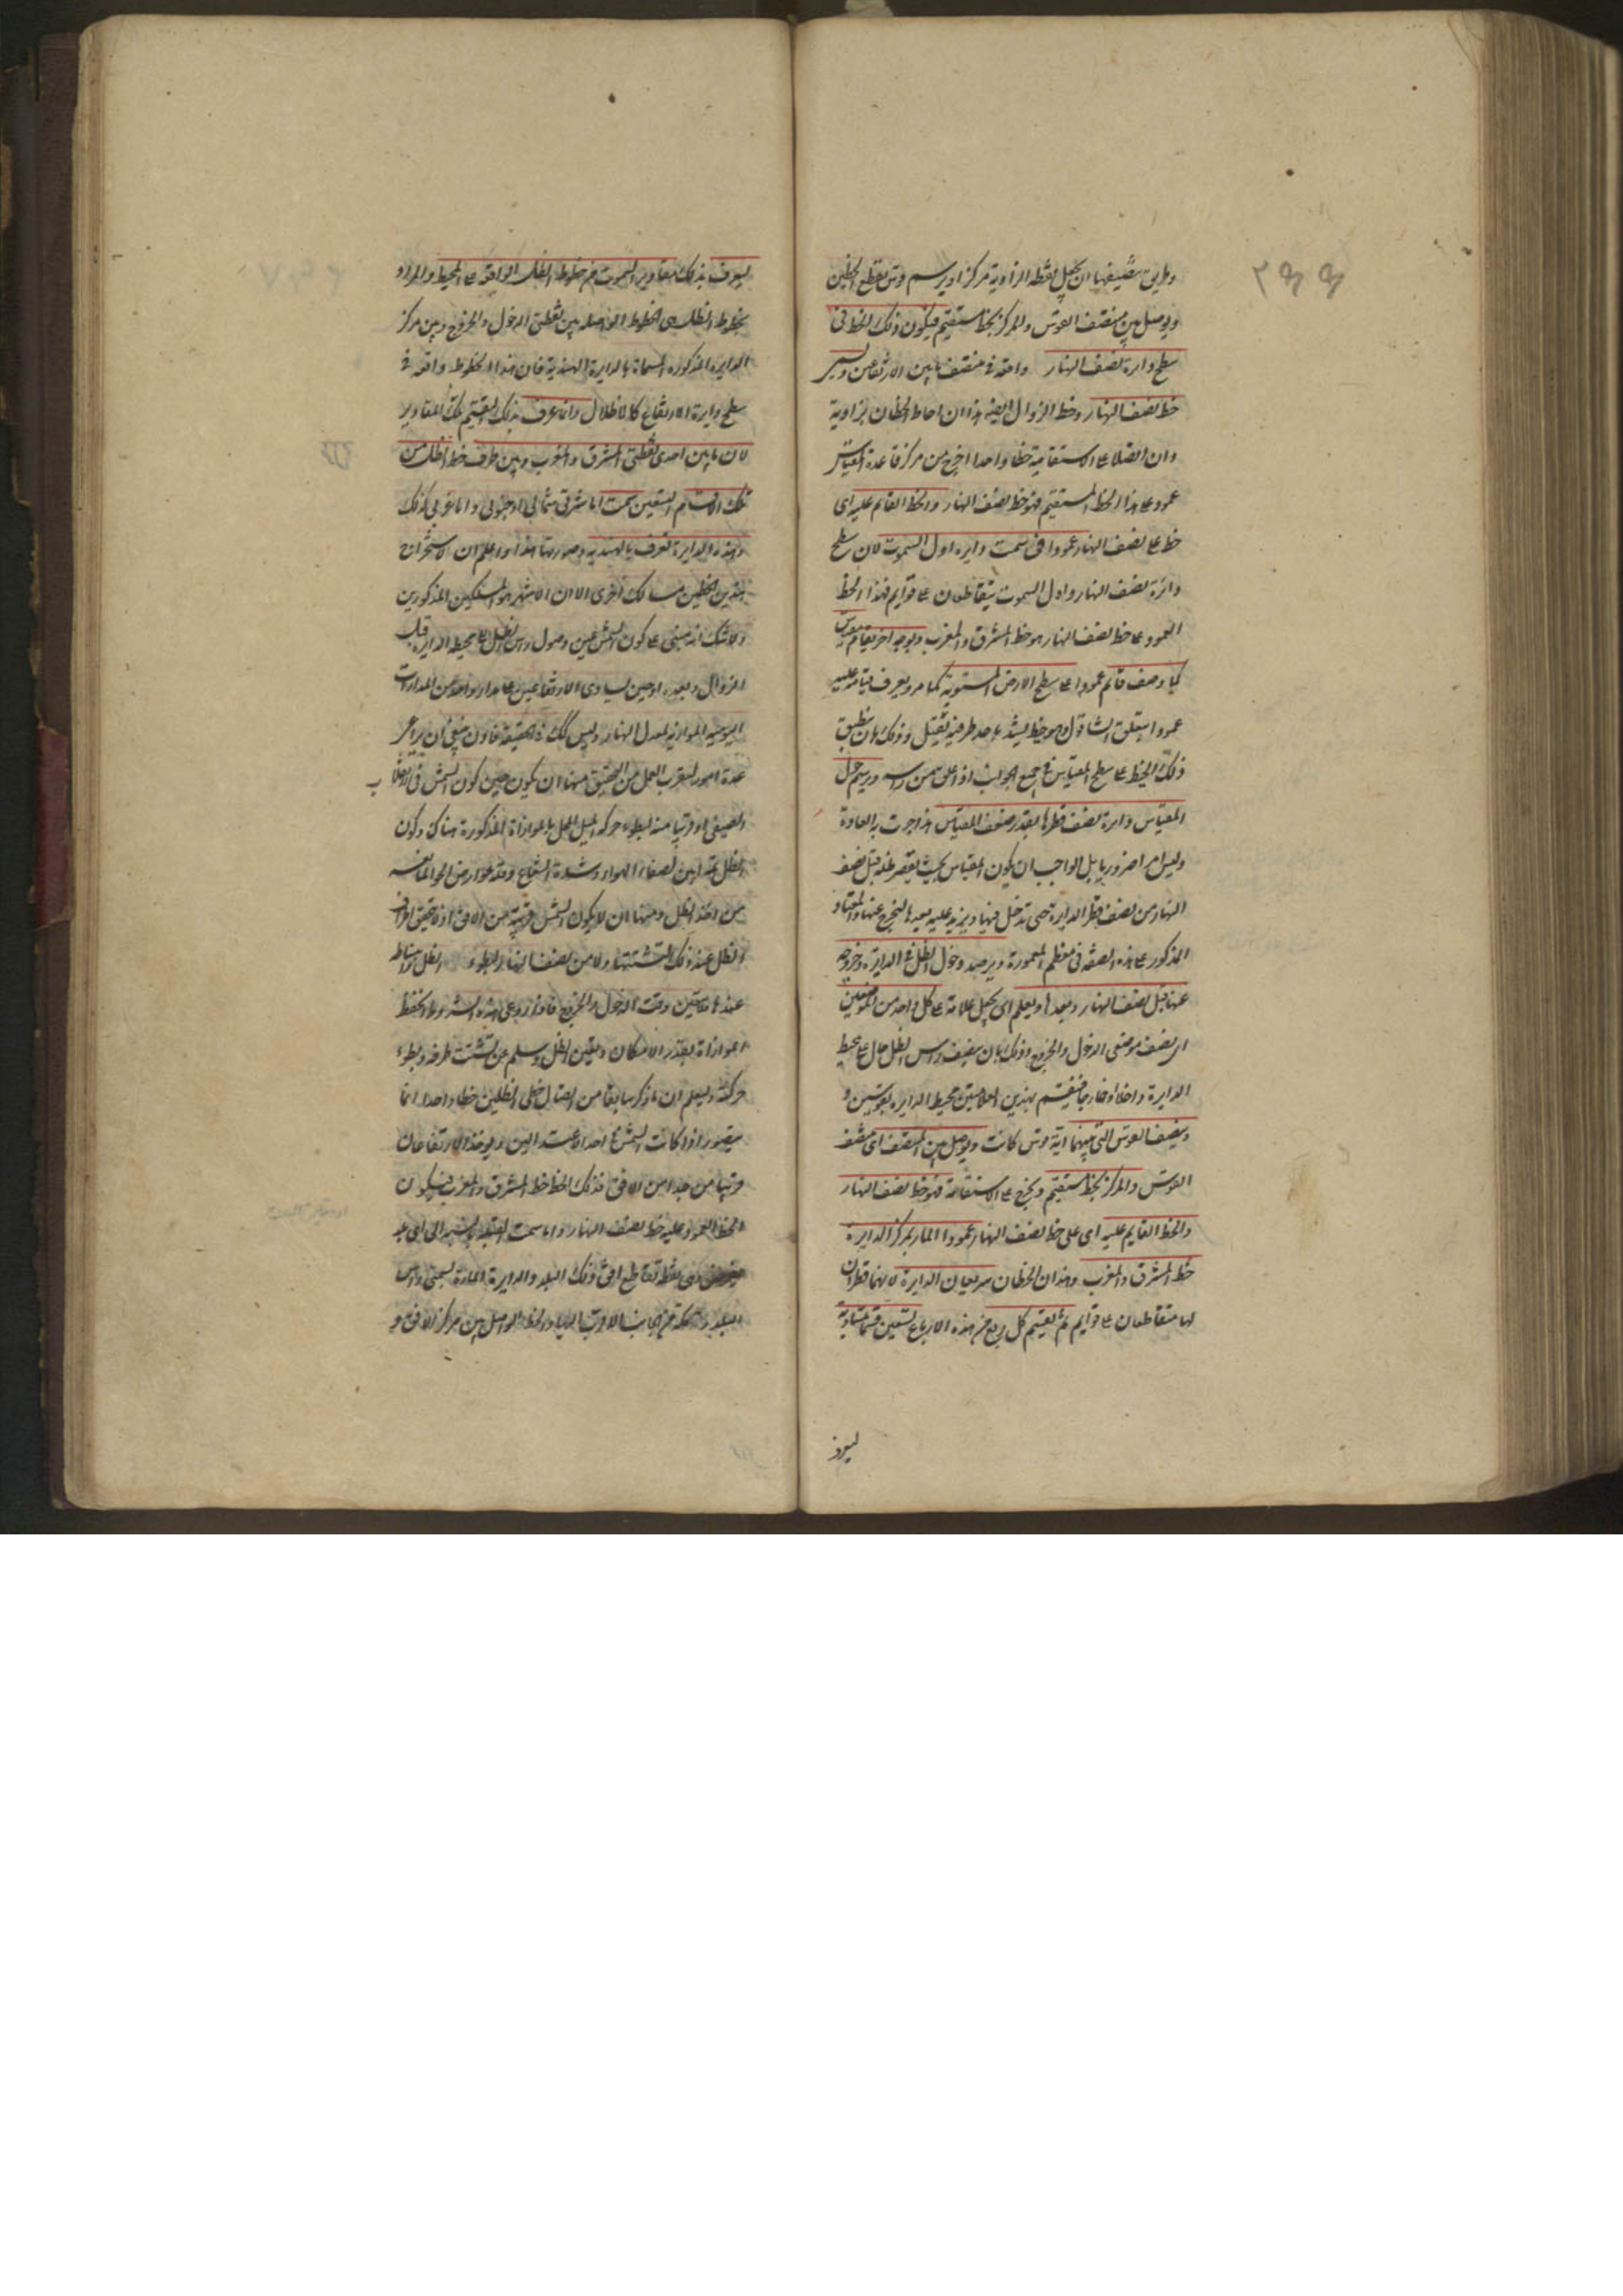 وطريق تنصيفها ان يجعل نقطه الزاوية مركزا ويرسم قوس يقطع الخطين
ويوصل بين منتصف القوس والمركز بخط مستقيم فيكون ذلك الخط فى
سطح دايرة نصف النهار واقعة فى منتصف ما بين الارتفاعين ويسمى
خط نصف النهار وخط الزوال ايضا هذا ان احاط الخطان بزاوية
وان اتصلا على الاستقامة خطا واحدا اخرج من مركز قاعدة المقياس
عمود على هذا الخط المستقيم فهو خط نصف النهار والخط القايم عليه اى
خط على نصف النهار عمودا فى سمت دايره اول السموت لان سطح
دائرة نصف النهار واول السموت يتقاطعان على قوايم فهذا الخط
العمود على خط نصف النهار هو خط المشرق والمغرب وبوجه اخر يقام مقياس
كما وصف قائم عمودا على سطح الارض المستوية كما مر ويعرف قيامه عليه
عمودا بتعلق الشاقول وهو خيط يشد باحد طرفيه ثقيل وذلك بان ينطبق
ذلك الخيط على سطح المقياس فى جميع الجوانب اذا علق من راسه ويرسم حول
المقياس دايرة نصف قطرها بقدر ضعف المقياس هذا جرت به العادة
وليس امرا ضروريا بل الواجب ان يكون المقياس بحيث يقصر ظله قبل نصف
النهار من نصف قطر الدايرة حتى تدخل فيها ويزيد عليه بعد ها ليخرج عنها والمقياس
المذكور على هذه الصفة فى معظم المعمورة ويرصد دخول الظل فى الدايرة وخروجه
عنها قبل نصف النهار وبعدها ويعلم اى يجعل علامة على كل واحد من الموضعين
اى نصف موضعى الدخول والخروج وذلك بان ينصف راس الظل حال على محيط
الدايرة داخلا او خارجا فينقسم بهذين العلامتين محيط الدايره بقوسين و
وينصف القوس التى بينهما اية قوس كانت ويوصل بين المنتصف اى منتصف
القوس والمركز بخط مستقيم ويخرج على الاستقامة فهو خط نصف النهار
والخط القايم عليه اى على خط نصف النهار عمودا المار بمركز الدايرة
خط المشرق والمغرب وهذان الخطان يربعان الدايرة لانهما قطران
لها متقاطعان على قوايم ثم يقسم كل ربع من هذه الارباع تسعين قسما متساوية
ليعرف
ليعرف بذلك مقادير السموت من خطوط الظل الواقعة على المحيط والمراد
بخطوط الظل هى الخطوط الواصله بين نقطتى الدخول والخروج وبين مركز
الدايرة المذكوره المسماة بالدايرة الهندية فان هذا الخطوط واقعه فى
سطح دايرة الارتفاع كالاظلال وانما عرف بذلك التقسيم تلك المقادير
لان ما بين احدى نقطتى المشرق والمغرب وبين طرف خط الظل من
تلك الاقسام التسعين سمت اما شرقى شمالى او جنوبى واما غربى كذلك
وهذه الدايرة تعرف بالهندية وصورتها هذا واعلم ان لاستخراج
هذين الخطين مسالك اخرى الا ان الاشهر هو المسلكين المذكورين
ولا شك انه مبنى على كون الشمس حين وصول راس الظل الى محيط الدايره قبل
الزوال وبعده او حين تساوى الارتفاعين على مدار واحد من المدارات
اليومية الموازية لمعدل النهار وليس كذلك فى الحقيقة فاذن ينبغى ان يراعى
عدة امور ليقرب العمل من التحقيق منها ان يكون حين كون الشمس فى الانقلاب
الصيفى او قريبا منه لبطوء حركة الميل المخل بالموازاة المذكورة هناك وكون
الظل ثمة ابين لصفاء الهواء وشدة الشعاع وقلة عوارض الجو المانعة
من اخذ الظل ومنها ان لا يكون الشمس قريبة من الافق اذ لا يتحقق اطراف
الظل عند ذلك لتشتتها ولا من نصف النهار لبطوء الظل وانبساطه
عندها فلا يتعين وقت الدخول والخروج فاذا روعى هذه الشروط انحفظ
الموازاة بقدر الامكان وتعين الظل وسلم عن تشتت طرفه وبطوء
حركته وليعلم ان ما ذكر سابقا من اتصال خطى الظلين خطا واحدا انما
يتصور اذا كانت الشمس فى احد الاعتدالين ويوخذ الارتفاعان
قريبا من جدا من الافق فذلك الخط خط المشرق والمغرب فيكون
الخط العمود عليه خط نصف النهار واما سمت القبله بالنسبه الى اى بلد
يفرض فهى نقطة تقاطع افق ذلك البلد والدايرة المارة بسمتى راس
البلد ومكة من جانب الاقرب اليها والخط الواصل بين مركز الافق و